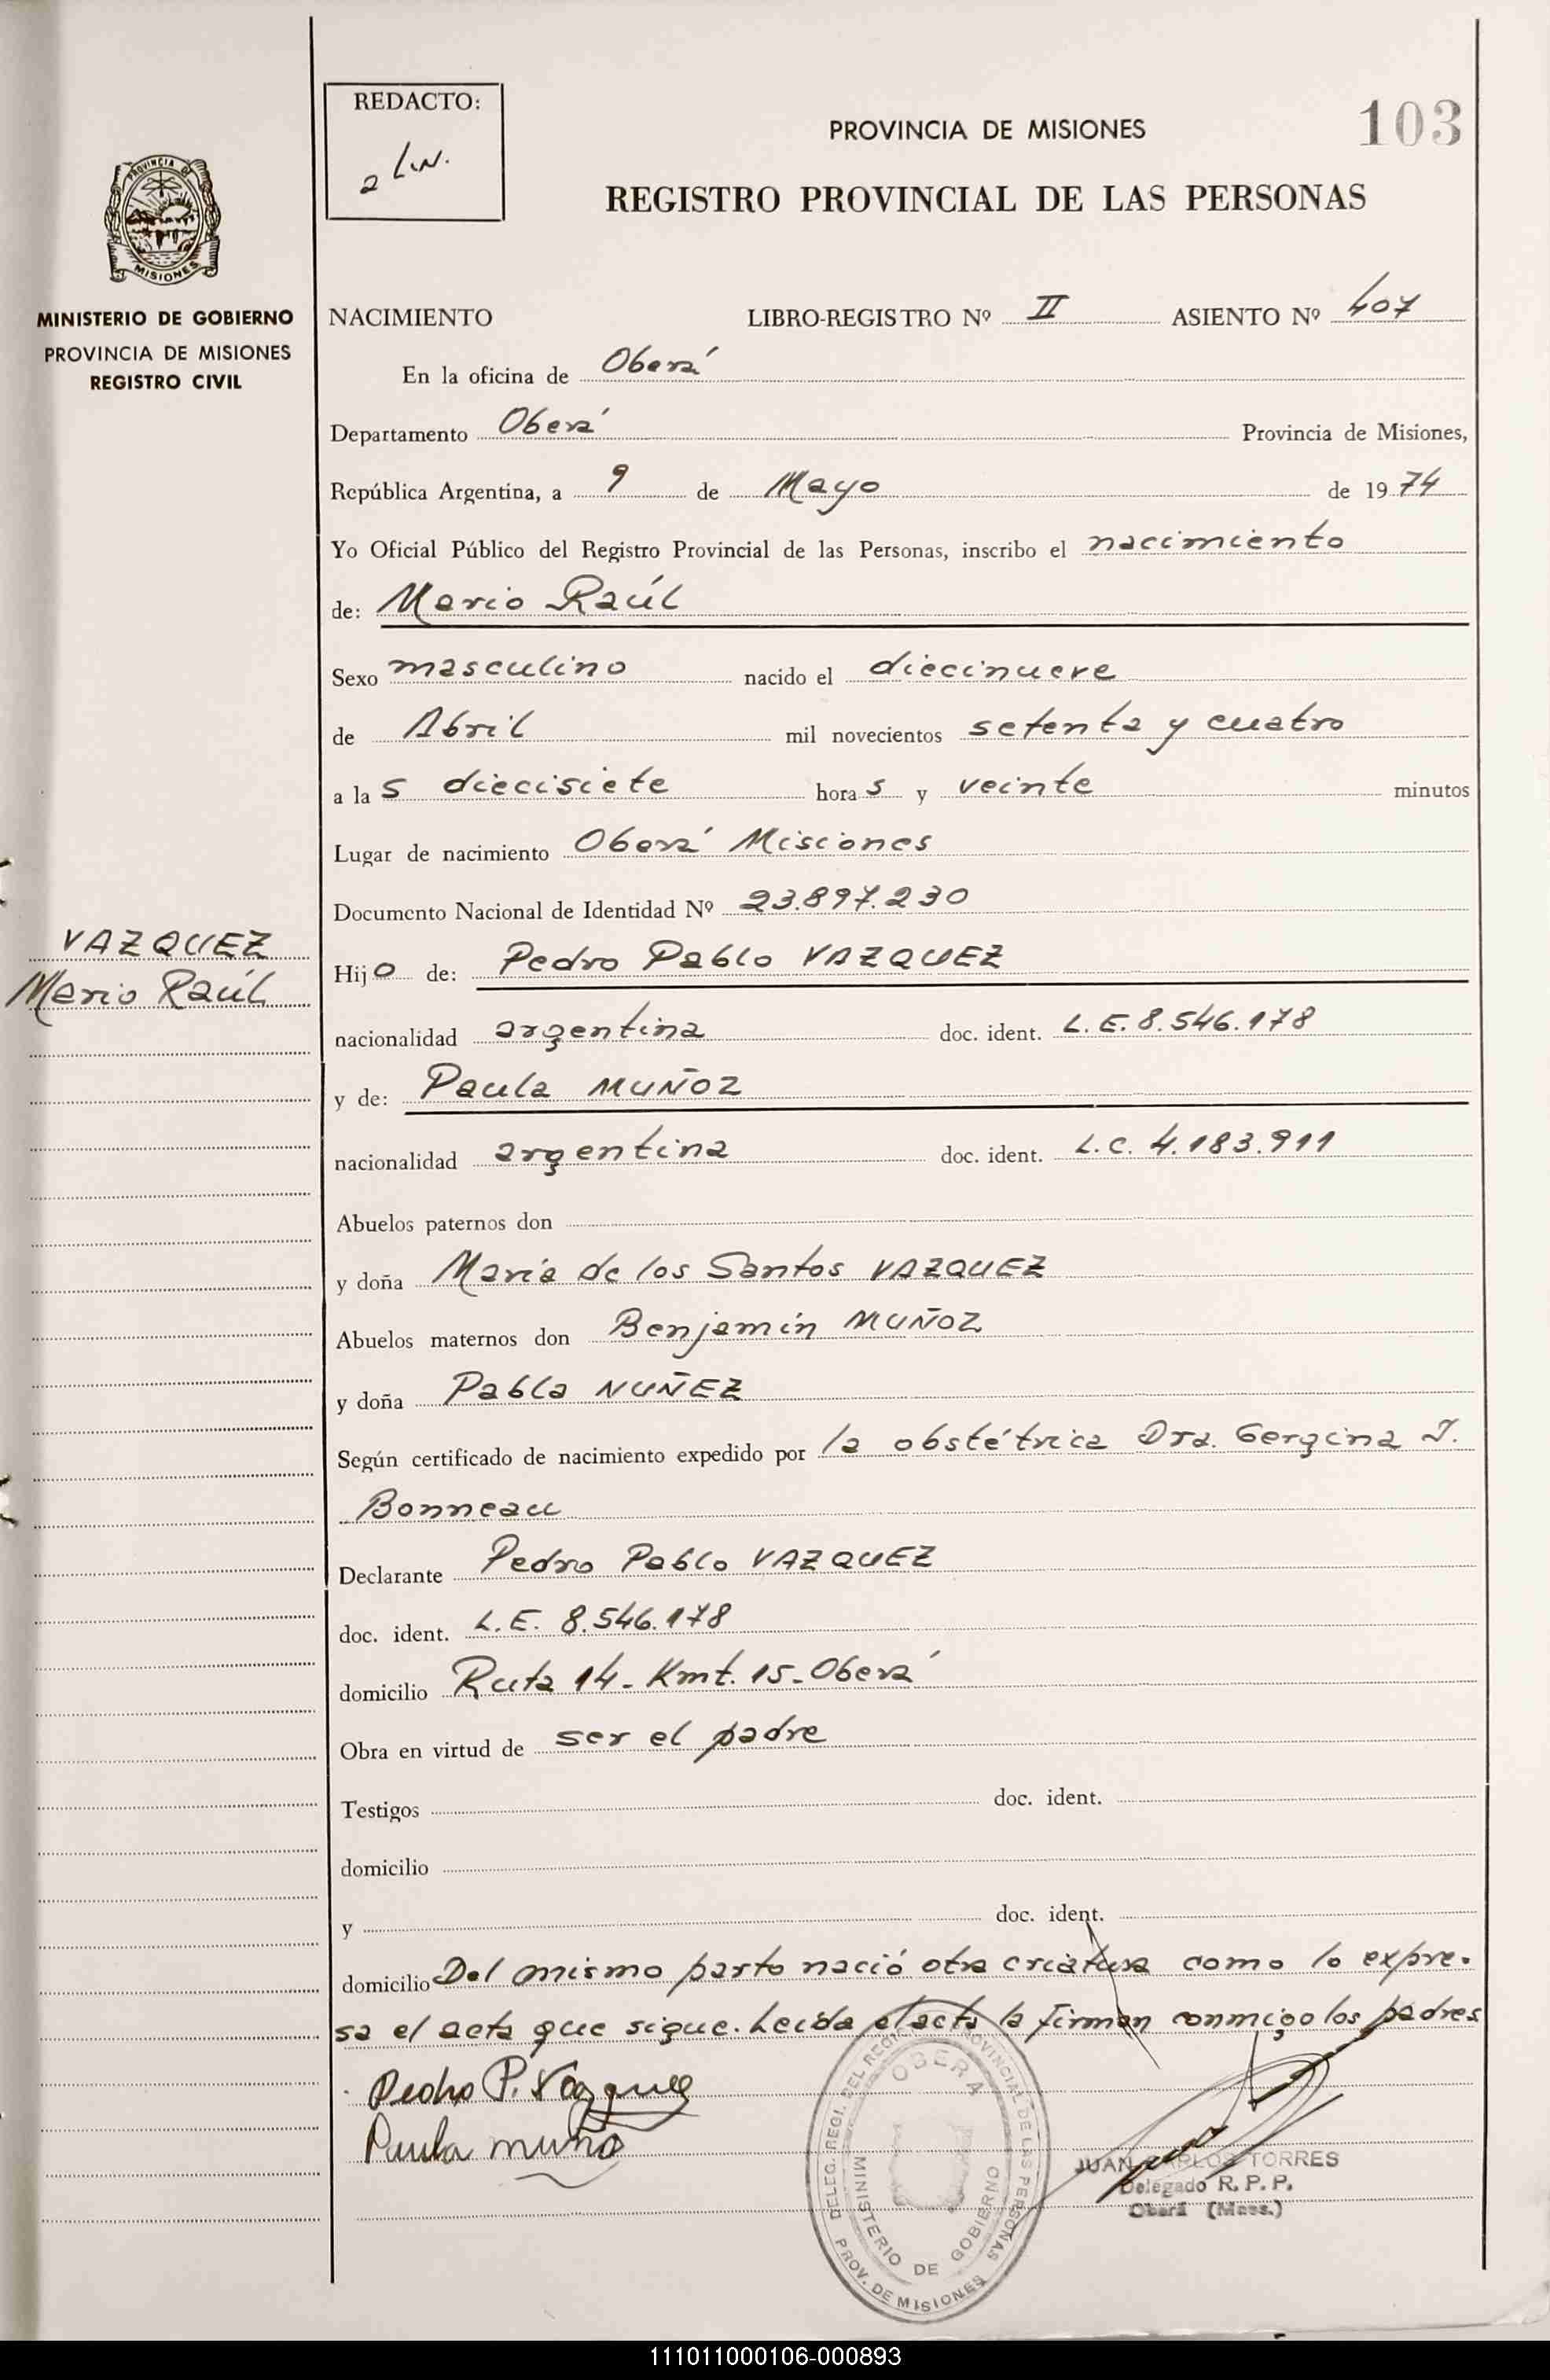 REDACTO:
PROVINCIA DE MISIONES
103
REGISTRO PROVINCIAL DE LAS PERSONAS
PROVINCIA DE
MISIONES
MINISTERIO DE GOBIERNO
PROVINCIA DE MISIONES
REGISTRO CIVIL
NACIMIENTO LIBRO-REGISTRO Nº II ASIENTO Nº 407
En la oficina de Oberá
Departamento Oberá Provincia de Misiones,
República Argentina, a 9 de Mayo de 1974
Yo Oficial Público del Registro Provincial de las Personas, inscribo el nacimiento
de: Mario Raúl
Sexo masculino nacido el diecinueve
de Abril mil novecientos setenta y cuatro
a las diecisiete horas y veinte minutos
Lugar de nacimiento Oberá Misiones
Documento Nacional de Identidad Nº 23.897.230
VAZQUEZ
Mario Raúl
Hijo de: Pedro Pablo VAZQUEZ
nacionalidad argentina doc. ident. L.E. 8.546.178
y de: Paula MUÑOZ
nacionalidad argentina doc. ident. L.C. 4.183.911
Abuelos paternos don
y doña María de los Santos VAZQUEZ
Abuelos maternos don Benjamín MUÑOZ
y doña Pabla NUÑEZ
Según certificado de nacimiento expedido por la obstétrica Dra. Gergina J.
Bonneau
Declarante Pedro Pablo VAZQUEZ
doc. ident. L.E. 8.546.178
domicilio Ruta 14 - Kmt. 15 - Oberá
Obra en virtud de ser el padre
Testigos doc. ident.
domicilio
y doc. ident.
domicilio Del mismo parto nació otra criatura como lo expre-
sa el acta que sigue. Leída el acta la firman conmigo los padres
Pedro P. Vazquez
Paula muño
DELEG. REGI. DEL REGISTRO PROVINCIAL DE LAS PERSONAS
OBERA
MINISTERIO DE GOBIERNO
PROV. DE MISIONES
JUAN CARLOS TORRES
Delegado R. P. P.
Oberá (Mnes.)
111011000106-000893